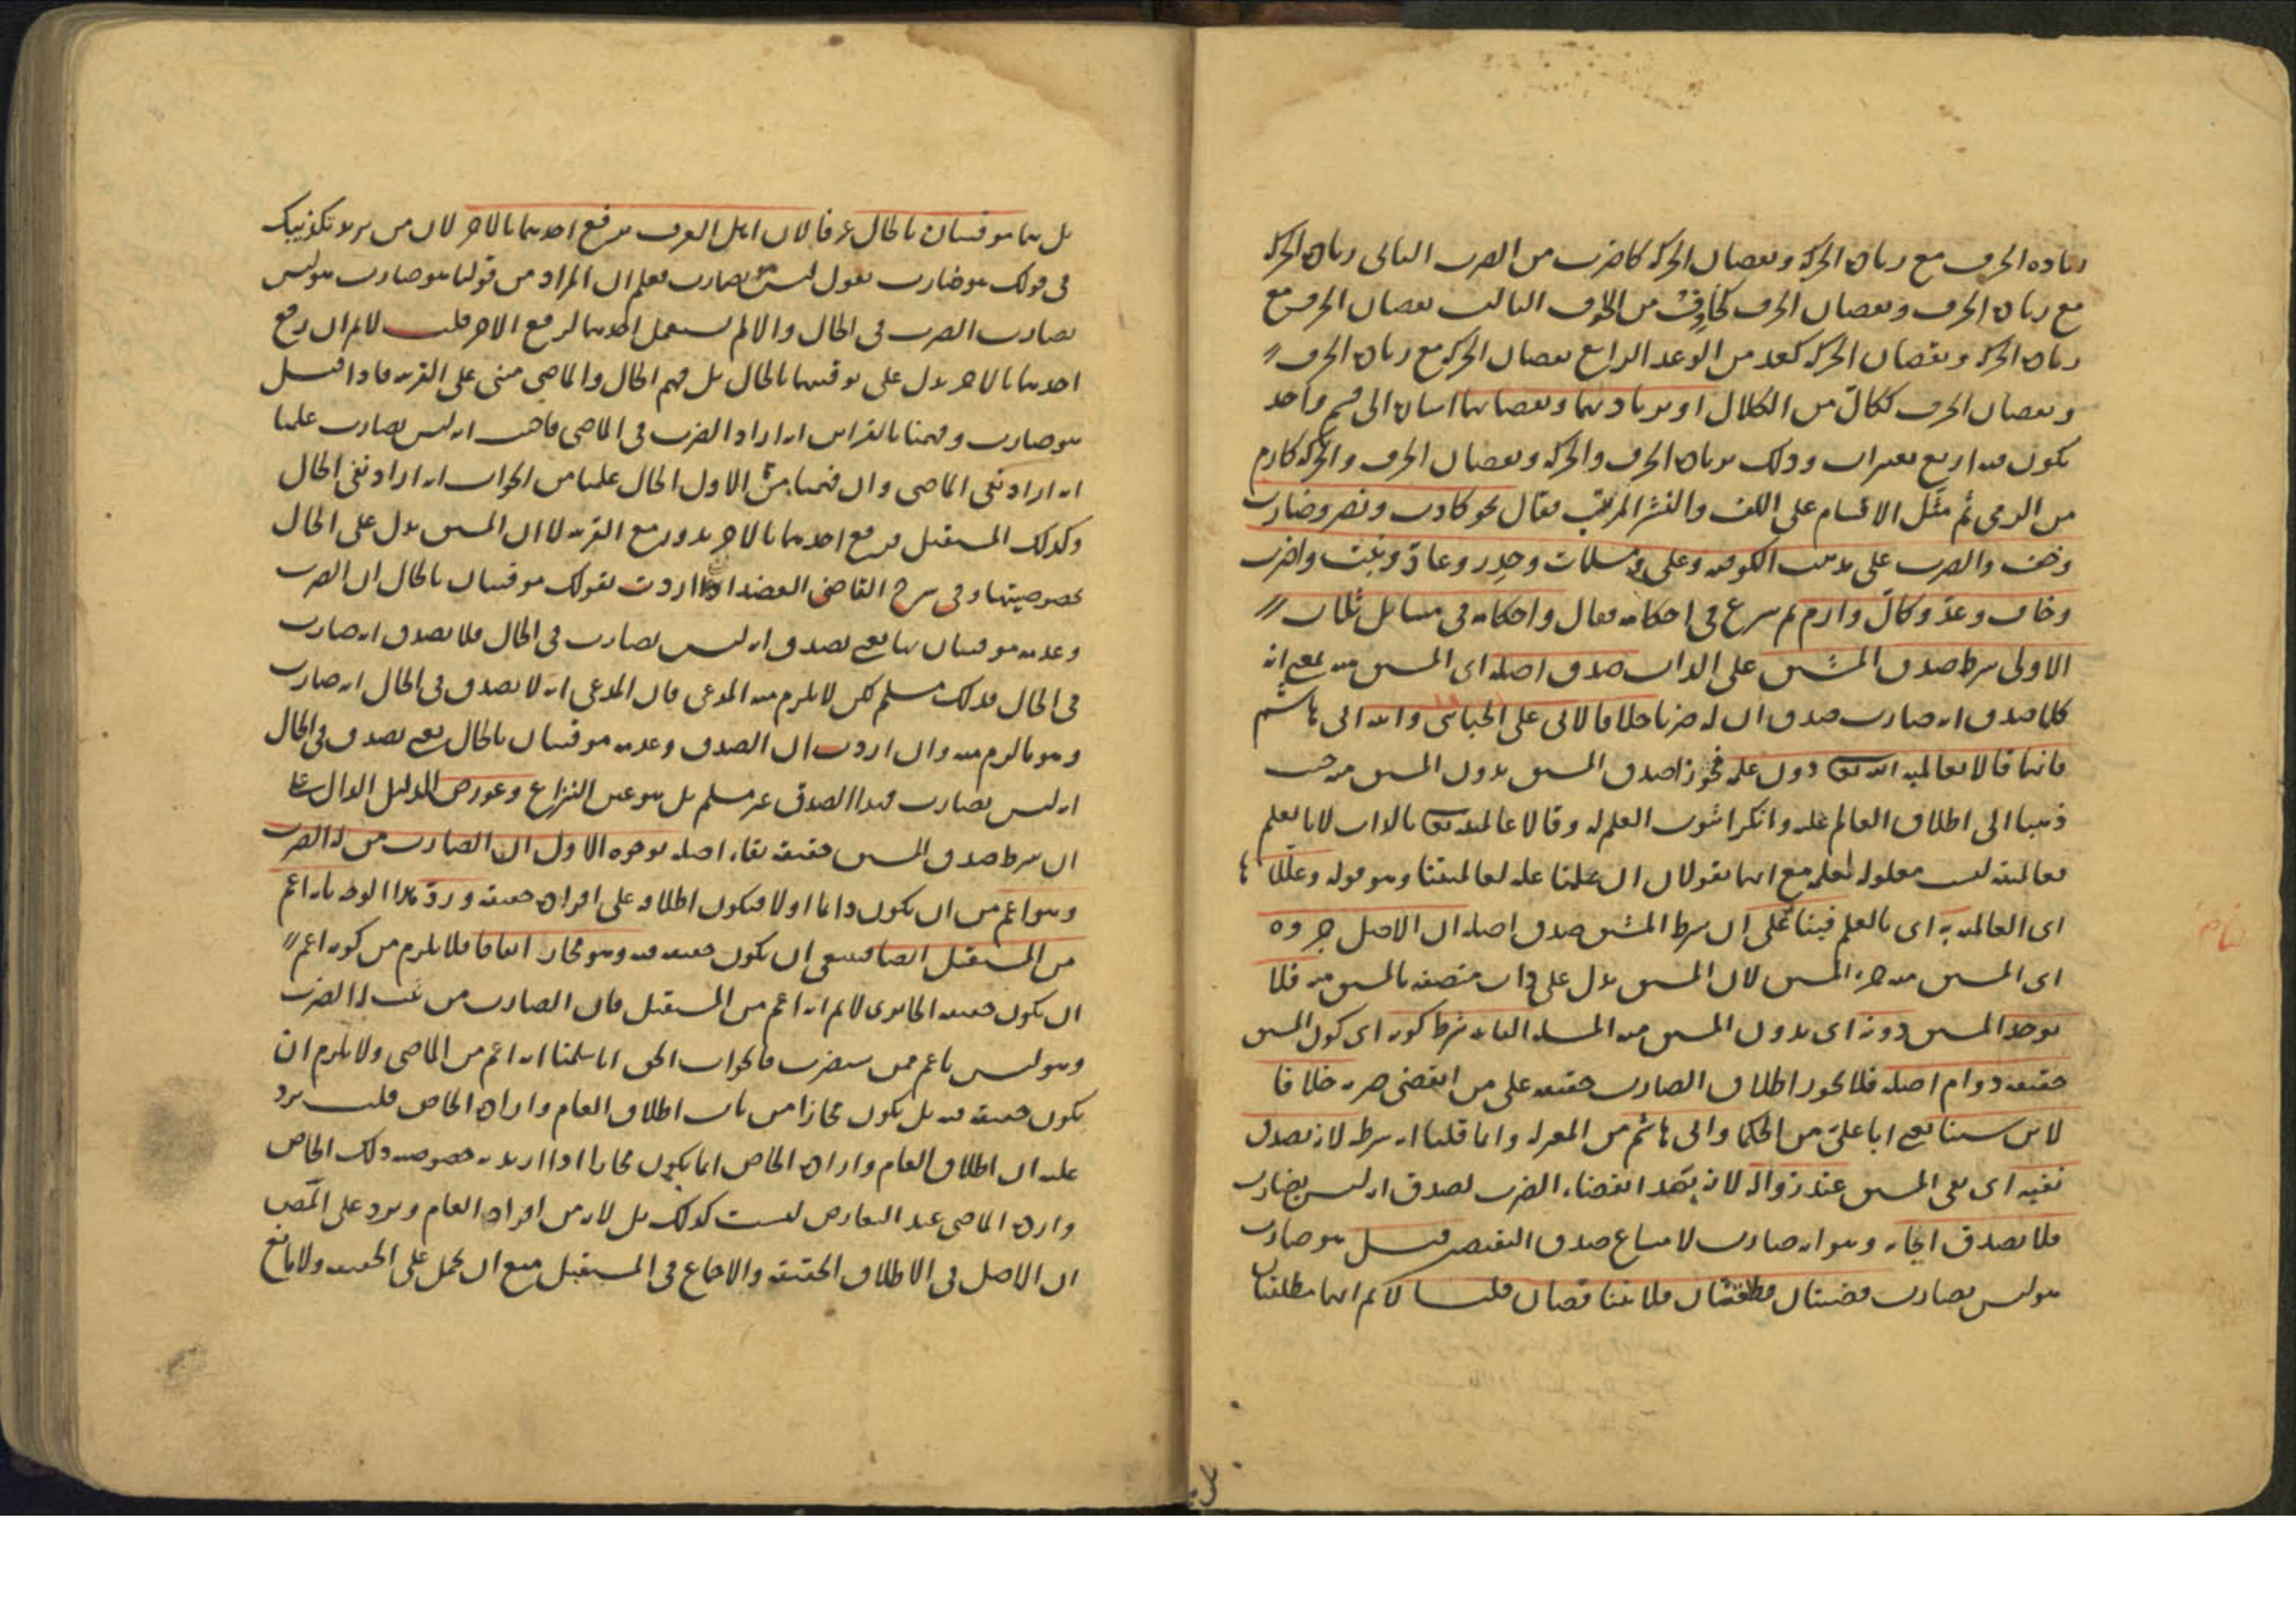 زيادة الحرف مع زيادة الحركة ونقصان الحركة كاضرب من الضرب الثاني زيادة الحركة
مع زيادة الحرف ونقصان الحرف من الخوف الثالث نقصان الحرف مع
زيادة الحركة ونقصان الحركة كعد من الوعد الرابع نقصان الحركة مع زيادة الحرف
ونقصان الحرف ككالّ من الكلال او بزيادتهما ونقصانهما اشارة الى قسم واحد
يكون فيه اربع تغييرات وذلك بزيادة الحرف والحركة ونقصان الحرف والحركة كارم
من الرمي ثم مثّل الاقسام على اللف والنشر المرتب فقال نحو كاذب ونصر وضارب
وخف والضرب على مذهب الكوفيه وعلى ومسلمات وحذر وعادّ ونبت واضرب
وخاف وعد وكالّ وارم ثم شرع في احكامه فقال واحكامه في مسائل ثلاث
الاولى شرط صدق المشتق على الذات صدق اصله اى المشتق منه بمعنى انه
كلما صدق انه ضارب صدق ان له ضربا خلافا لابي على الجبائي وابنه ابى هاشم
فانهما قالا بعالمية الله تعالى دون علمه فجوزا صدق المشتق بدون المشتق منه حيث
ذهبا الى اطلاق العالم عليه وانكرا ثبوت العلم له وقالا عالمية الله تعالى بالذات لا بالعلم
فعالميته ليست معلولة لعلمه مع انهما يقولان ان علمنا علة لعالميتنا وهو قوله وعلّلا ها
اى العالمية به اى بالعلم فينا على ان شرط المشتق صدق اصله ان الاصل جزؤه
اى المشتق منه جزء المشتق لان المشتق يدل على ذات متصفة بالمشتق منه فلا
يوجد المشتق دونه اى بدون المشتق منه المسئلة الثانية شرط كونه اى كون المشتق
حقيقة دوام اصله فلا يجوز اطلاق الضارب حقيقة على من انقضى ضربه خلافا
لابن سينا يعنى ابا على من الحكما وابى هاشم من المعتزلة وانما قلنا انه شرط لانه يصدق
نفيه اى نفى المشتق عند زواله لانه بعد انقضاء الضرب يصدق انه ليس بضارب
فلا يصدق ايجابه وهو انه ضارب لامتناع صدق النقيضين قيل هو ضارب
هو ليس بضارب قضيتان مطلقتان فلا يتناقضان قلنا لانم انهما مطلقتان
بل هما موقتتان بالحال عرفا لان اهل العرف يرفع احدهما بالاخر لان من يريد تكذيبك
في قولك هو ضارب يقول ليس هو بضارب فعلم ان المراد من قولنا هو ضارب هو ليس
بضارب الضرب في الحال والا لم يستعمل احدهما لرفع الاخر قلت لانم ان رفع
احدهما بالاخر يدل على توقيتهما بالحال بل فهم الحال والماضي مبنى على القرينة فاذا قيل
هو ضارب وفهمنا بالقراين انه اراد الضرب في الماضي فاجيب انه ليس بضارب علمنا
انه اراد نفى الماضي وان فهمنا من الاول الحال علمنا من الجواب انه اراد نفى الحال
وكذلك المستقبل فرفع احدهما بالاخر يدور مع القرينة لا ان المشتق يدل على الحال
بخصوصيتها وفي شرح القاضى العضد اذا اردت بقولك موقتتان بالحال ان الضرب
وعدمه موقتتان بها يعنى يصدق انه ليس بضارب في الحال فلا يصدق انه ضارب
في الحال فذلك مسلم لكن لا يلزم منه المدعى فان المدعى انه لا يصدق في الحال انه ضارب
وهو ما لزم منه وان اردت ان الصدق وعدمه موقتتان بالحال يعنى يصدق في الحال
انه ليس بضارب فهذا الصدق غير مسلم بل هو عين النزاع وعورض الدليل الدال على
ان شرط صدق المشتق حقيقة بقاء اصله بوجوه الاول ان الضارب من له الضرب
وهو اعم من ان يكون دائما او لا فيكون اطلاقه على افراده حقيقة ورد هذا الوجه بانه اعم
من المستقبل ايضا فينبغي ان يكون حقيقة فيه وهو مجاز اتفاقا فلا يلزم من كونه اعم
ان يكون حقيقة لانم انه اعم من المستقبل فان الضارب من ثبت له الضرب
وهو ليس باعم ممن سيضرب فالجواب الحق انا سلمنا انه اعم من الماضي ولا يلزم ان
يكون حقيقة فيه بل يكون مجازا من باب اطلاق العام وارادة الخاص قلت يرد
عليه ان اطلاق العام وارادة الخاص انما يكون مجازا اذا اريد به خصوصية ذلك الخاص
وارادة الماضي عند التعارض ليست كذلك بل لانه من افراد العام ويرد على المص
ان الاصل في الاطلاق الحقيقة والاجماع في المستقبل منع ان يحمل على الحقيقة ولا مانع